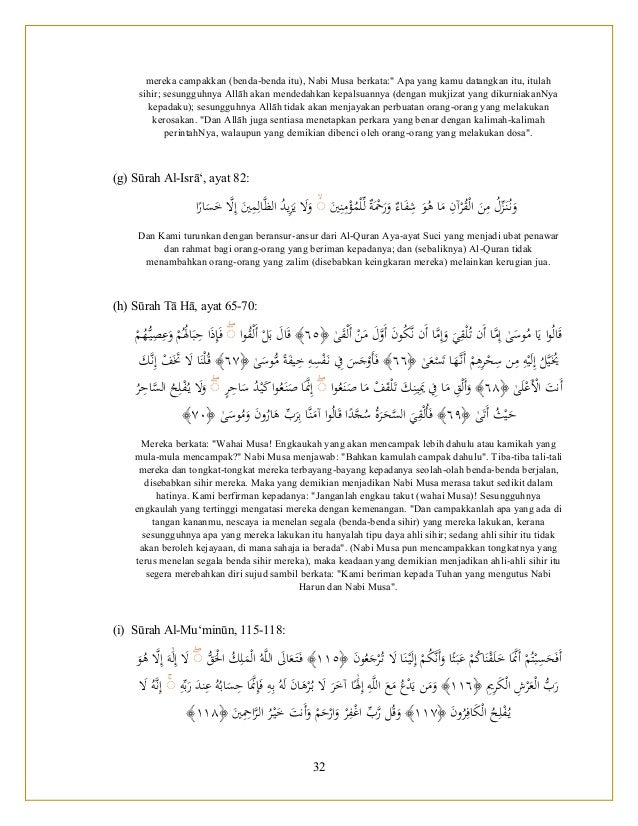 mereka campakkan (benda-benda itu), Nabi Musa berkata:" Apa yang kamu datangkan itu, itulah
sihir; sesungguhnya Allāh akan mendedahkan kepalsuannya (dengan mukjizat yang dikurniakanNya
kepadaku); sesungguhnya Allāh tidak akan menjayakan perbuatan orang-orang yang melakukan
kerosakan. "Dan Allāh juga sentiasa menetapkan perkara yang benar dengan kalimah-kalimah
perintahNya, walaupun yang demikian dibenci oleh orang-orang yang melakukan dosa".
(g) Sūrah Al-Isrā‘, ayat 82:
وَنُنَزِّلُ مِنَ الْقُرْآنِ مَا هُوَ شِفَاءٌ وَرَحْمَةٌ لِّلْمُؤْمِنِينَ ۙ وَلَا يَزِيدُ الظَّالِمِينَ إِلَّا خَسَارًا
Dan Kami turunkan dengan beransur-ansur dari Al-Quran Aya-ayat Suci yang menjadi ubat penawar
dan rahmat bagi orang-orang yang beriman kepadanya; dan (sebaliknya) Al-Quran tidak
menambahkan orang-orang yang zalim (disebabkan keingkaran mereka) melainkan kerugian jua.
(h) Sūrah Tā Hā, ayat 65-70:
قَالُوا يَا مُوسَىٰ إِمَّا أَن تُلْقِيَ وَإِمَّا أَن نَّكُونَ أَوَّلَ مَنْ أَلْقَىٰ ﴿٦٥﴾ قَالَ بَلْ أَلْقُوا ۖ فَإِذَا حِبَالُهُمْ وَعِصِيُّهُمْ
يُخَيَّلُ إِلَيْهِ مِن سِحْرِهِمْ أَنَّهَا تَسْعَىٰ ﴿٦٦﴾ فَأَوْجَسَ فِي نَفْسِهِ خِيفَةً مُّوسَىٰ ﴿٦٧﴾ قُلْنَا لَا تَخَفْ إِنَّكَ
أَنتَ الْأَعْلَىٰ ﴿٦٨﴾ وَأَلْقِ مَا فِي يَمِينِكَ تَلْقَفْ مَا صَنَعُوا ۖ إِنَّمَا صَنَعُوا كَيْدُ سَاحِرٍ ۖ وَلَا يُفْلِحُ السَّاحِرُ
حَيْثُ أَتَىٰ ﴿٦٩﴾ فَأُلْقِيَ السَّحَرَةُ سُجَّدًا قَالُوا آمَنَّا بِرَبِّ هَارُونَ وَمُوسَىٰ ﴿٧٠﴾
Mereka berkata: "Wahai Musa! Engkaukah yang akan mencampak lebih dahulu atau kamikah yang
mula-mula mencampak?" Nabi Musa menjawab: "Bahkan kamulah campak dahulu". Tiba-tiba tali-tali
mereka dan tongkat-tongkat mereka terbayang-bayang kepadanya seolah-olah benda-benda berjalan,
disebabkan sihir mereka. Maka yang demikian menjadikan Nabi Musa merasa takut sedikit dalam
hatinya. Kami berfirman kepadanya: "Janganlah engkau takut (wahai Musa)! Sesungguhnya
engkaulah yang tertinggi mengatasi mereka dengan kemenangan. "Dan campakkanlah apa yang ada di
tangan kananmu, nescaya ia menelan segala (benda-benda sihir) yang mereka lakukan, kerana
sesungguhnya apa yang mereka lakukan itu hanyalah tipu daya ahli sihir; sedang ahli sihir itu tidak
akan beroleh kejayaan, di mana sahaja ia berada". (Nabi Musa pun mencampakkan tongkatnya yang
terus menelan segala benda sihir mereka), maka keadaan yang demikian menjadikan ahli-ahli sihir itu
segera merebahkan diri sujud sambil berkata: "Kami beriman kepada Tuhan yang mengutus Nabi
Harun dan Nabi Musa".
(i) Sūrah Al-Mu‘minūn, 115-118:
أَفَحَسِبْتُمْ أَنَّمَا خَلَقْنَاكُمْ عَبَثًا وَأَنَّكُمْ إِلَيْنَا لَا تُرْجَعُونَ ﴿١١٥﴾ فَتَعَالَى اللَّهُ الْمَلِكُ الْحَقُّ ۖ لَا إِلَٰهَ إِلَّا هُوَ
رَبُّ الْعَرْشِ الْكَرِيمِ ﴿١١٦﴾ وَمَن يَدْعُ مَعَ اللَّهِ إِلَٰهًا آخَرَ لَا بُرْهَانَ لَهُ بِهِ فَإِنَّمَا حِسَابُهُ عِندَ رَبِّهِ ۚ إِنَّهُ لَا
يُفْلِحُ الْكَافِرُونَ ﴿١١٧﴾ وَقُل رَّبِّ اغْفِرْ وَارْحَمْ وَأَنتَ خَيْرُ الرَّاحِمِينَ ﴿١١٨﴾
32